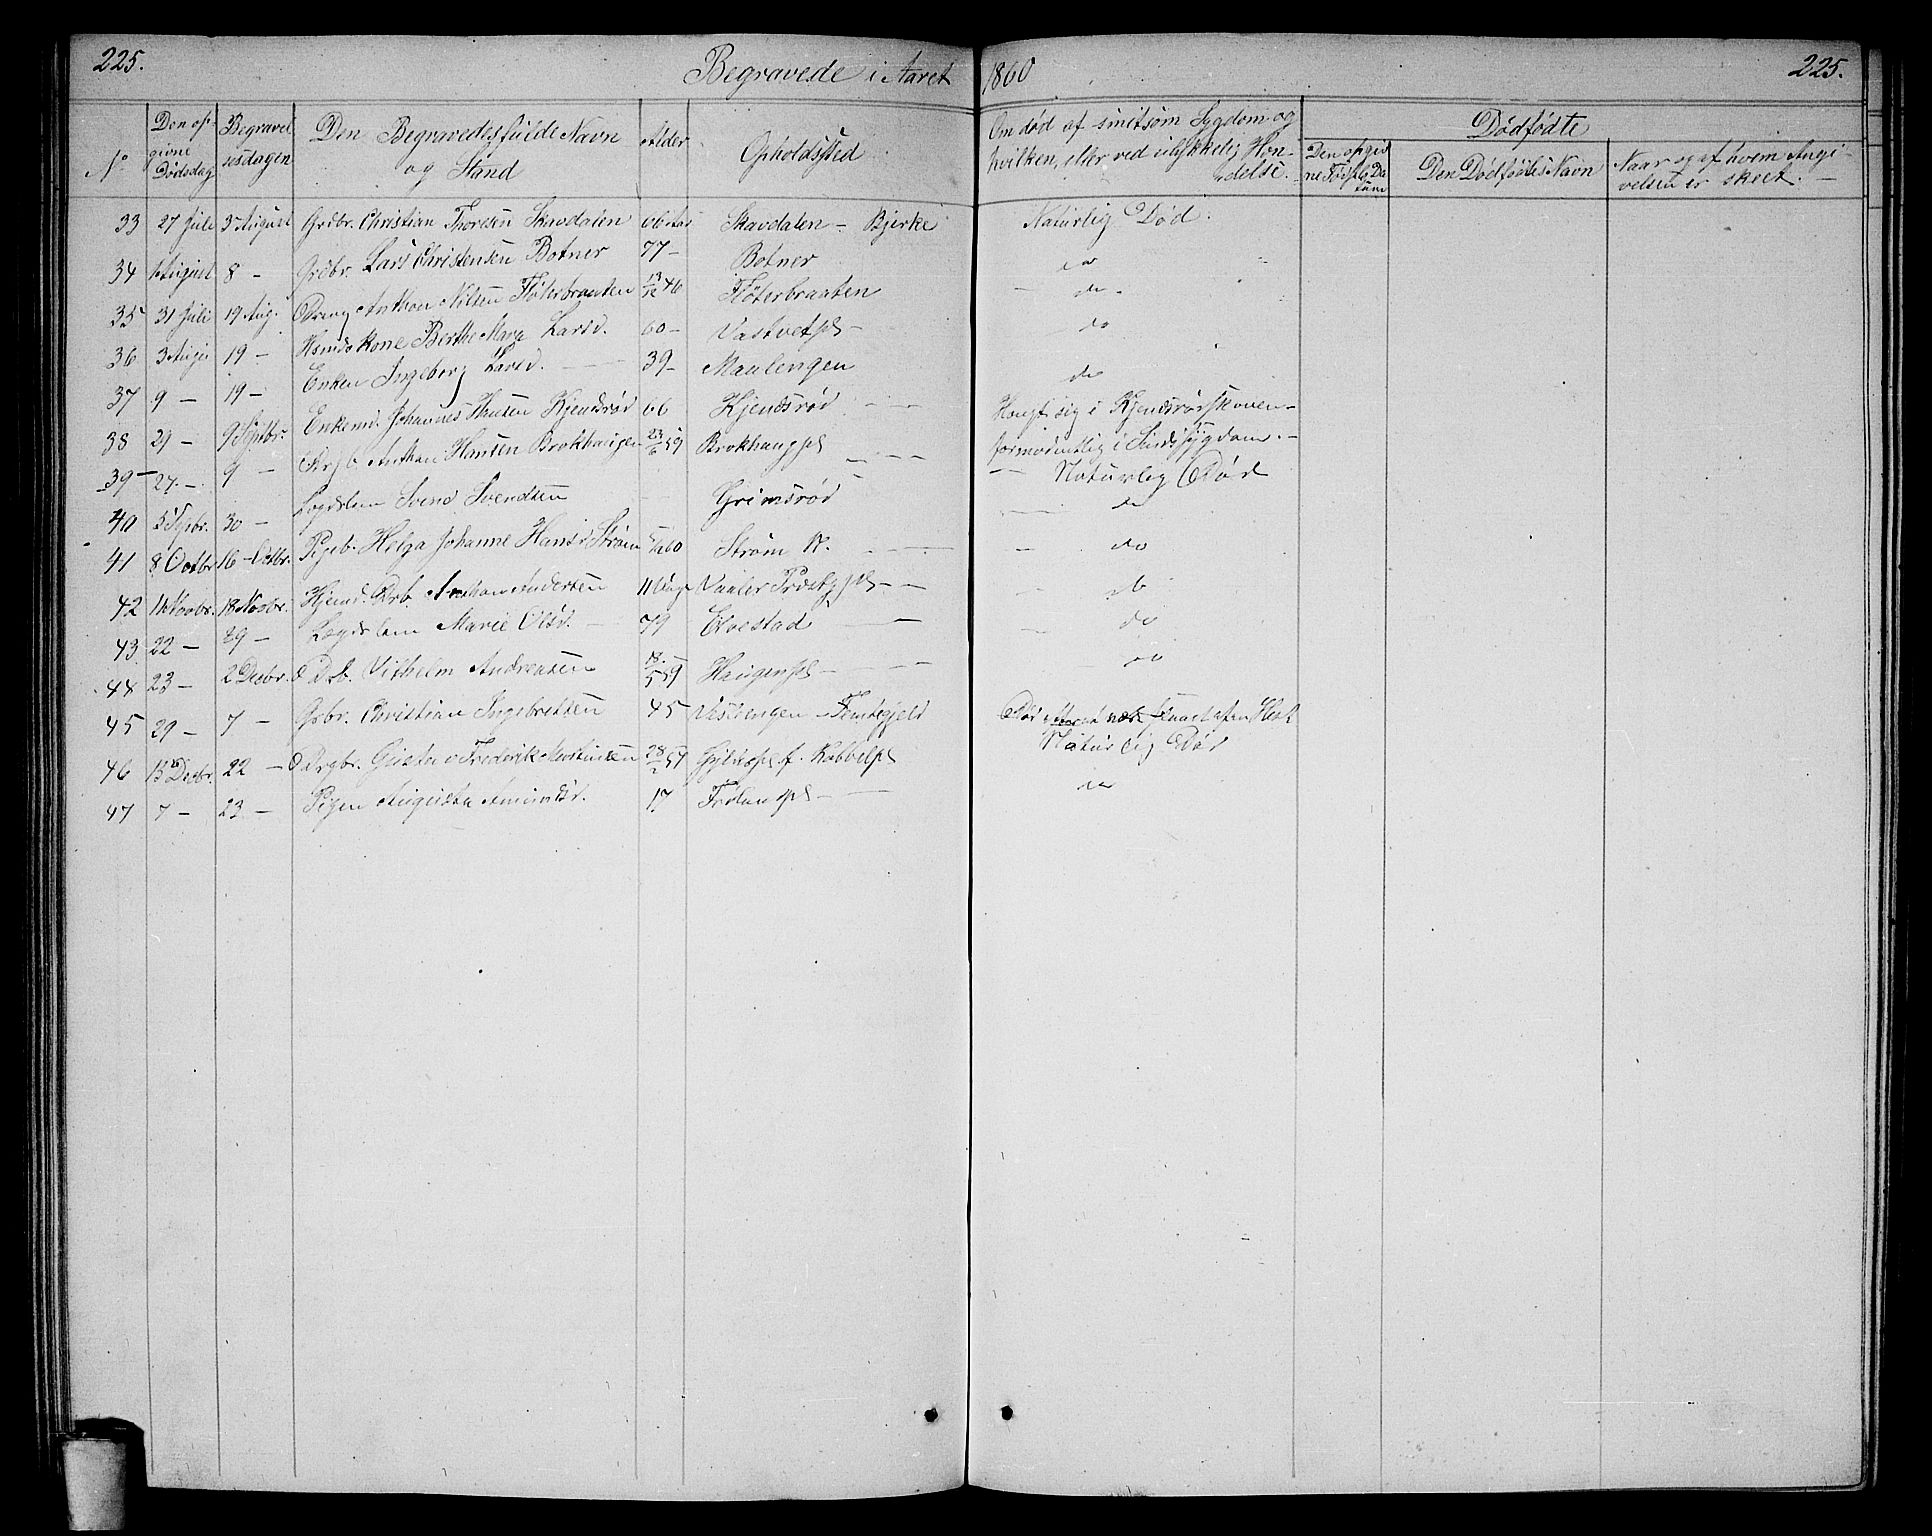 225.
Begravede i Aaret 1860
225.
No
Den op-
givne
Dødsdag
Begravel
sesdagen
Den Begravedes fulde Navn
og Stand
Alder
Opholdssted
Om død af smitsom Sygdom og
hvilken, eller ved ulykkelig Hæn-
delse.
Dødfødte
Den opgiv
ne Fødsels Da
tum
Den Dødfødtes Navn
Naar og af hvem Angi-
velsen er skeet.
33 27 Juli 5 August Grdbr. Christian Thoresen Skavdalen 66 Aar Skavdalen - Bjerke Naturlig Død.
34 1 August 8 - Grdbr. Lars Christensen Botner 77 - Botner do
35 31 Juli 19 Aug. Dreng Anthon Nilsen Fløterbraaten 13/12 46 Fløterbraaten do.
36 3 Augu 19 - Hsmds Kone Berthe Marg Larsd. 60 - Vastvetpl - do
37 9 - 19 - Enken Ingeborg Larsd. 39 - Maulengen do
38 29 - 9 Septbr. Enkemd. Johannes Hansen Kjendsrød 66 Kjendsrød Hængt sig i Kjendsrødskoven -
formodentlig i Sindssygdom. -
39 - 27. - 9 - Anthon Hansen Brokhaugen 23/6 59 Brokhaugpl Naturlig Død
40 5 Sepbr. 30 - Lægdslem Svend Svendsen Grimsrød do
41 8 Octbr 16 - Octbr. Pigeb. Helga Johanne Hansd. Strøm 60 Strøm N. do
42 11 Novbr. 18 Novbr. Hjemd. Drb. Anthon Andersen 11 Dage Vaaler Præstegpl - do
43 22 - 29 - Lægdslem Marie Olsd. 79 Elvestad do
44 23 - 2 Decbr. Drb. Vilhelm Andreasen 18/5 59 Haugenpl - do
45 29 - 7 - Gsbr. Christian Ingebretsen 45 Vestengen - Tomtegjeld Død af en Hest
46 13 Decbr. 22 - Drgbr. Gustav Frederik Martinsen 28/2 57 Gylderpl f. Kobbelpl Naturlig Død
47 7 - 23 - Pigen Augusta Amundsd. 17 Frølandpl - do